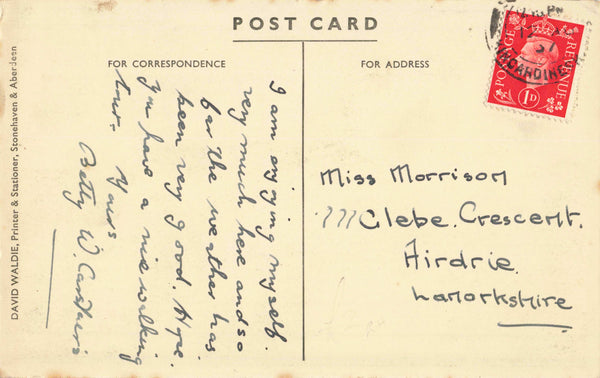 POST CARD
FOR CORRESPONDENCE
I am onjying myself.
very much here and so
far the weather has
been very good. Hope.
you have a nice walking
tour.
Yours
Betty W. Carstairs
FOR ADDRESS
Miss Morrison
Clebe. Crescent.
Airdrie.
Lanorkshire
POSTAGE
REVENUE
1D
DAVID WALDIE, Printer & Stationer, Stonehaven & Aberdeen